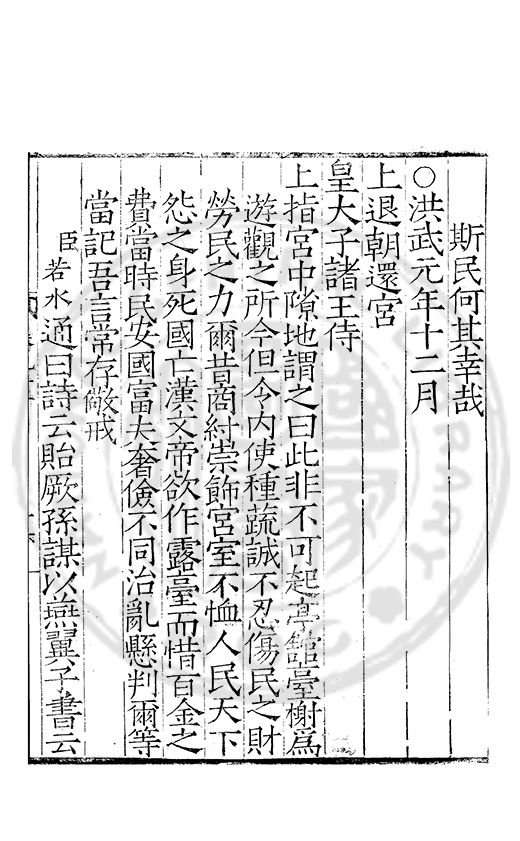 斯民何其幸哉
○洪武元年十二月
上退朝還宮
皇大子諸王侍
上指宮中隙地謂之曰此非不可起亭館臺榭爲
遊觀之所今但令内使種蔬誠不忍傷民之財
勞民之力爾昔商紂崇飾宮室不恤人民天下
怨之身死國亡漢文帝欲作露臺而惜百金之
費當時民安國富夫奢儉不同治亂懸判爾等
當記吾言常存儆戒
臣若水通曰詩云貽厥孫謀以燕翼子書云